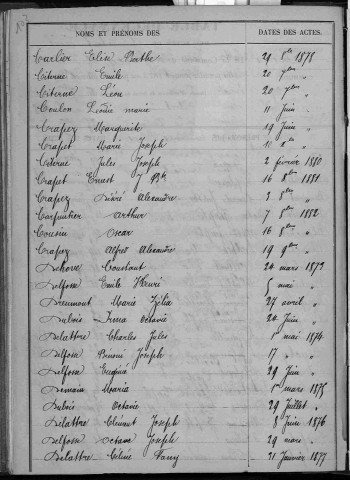 NOMS ET PRÉNOMS DES DATES DES ACTES.
Carlier Elise Berthe 29 8bre 1878
Citerne Emile 20 7bre "
Citerne Léon 20 7bre "
Coulon Léodie Marie 11 Juin "
Crapez Marguerite 19 Juin "
Crapet Marie Joseph 11 8bre "
Citerne Jules Joseph 2 février 1880
Crapet Ernest J Bte 16 8bre 1881
Crapez Désiré Alexandre 3 8bre "
Carpentier Arthur 7 8bre 1882
Cousin Oscar 16 8bre "
Crapez Alfred Alexandre 19 9bre "
Dehove Constant 24 mars 1873
Delfosse Emile Henri 5 mai "
Dreumont Marie Zélia 27 avril "
Dubois Irma Octavie 24 Juin "
Delattre Charles Jules 1er mai 1874
Delfosse Joseph 17 " "
Delfosse Eugène 29 Juin "
Demain Maria 1er mars 1875
Dubois Octavie 29 Juillet "
Delattre Clément Joseph 8 Juin 1876
Delfosse Octave Joseph 29 mars "
Delattre Céline Fany 21 Janvier 1877